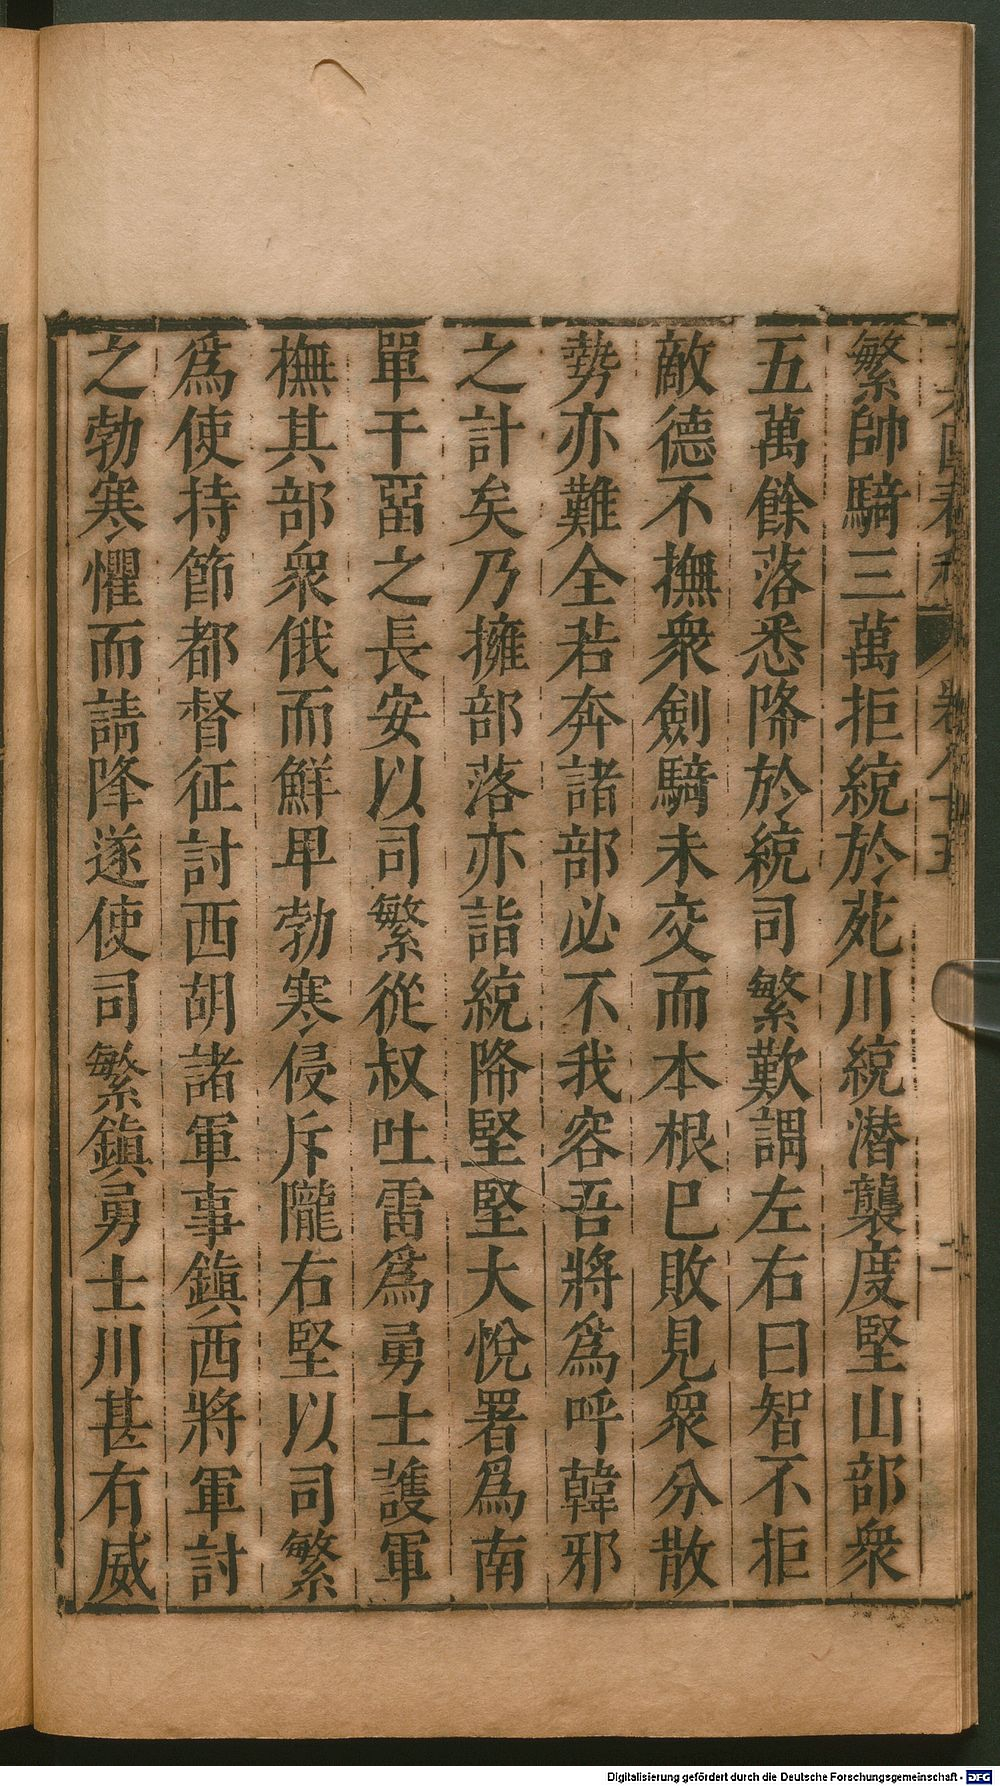 繁帥騎三萬拒統於苑川統潜襲度堅山部衆
五萬餘落悉降於統司繁歎謂左右曰智不拒
敵德不撫衆劍騎未交而本根已敗見衆分散
勢亦難全若奔諸部必不我容吾將爲呼韓邪
之計矣乃擁部落亦詣統降堅堅大悅署爲南
單于畱之長安以司繁從叔吐雷爲勇士護軍
撫其部衆俄而鮮卑勃寒侵斥隴右堅以司繁
爲使持節都督征討西胡諸軍事鎭西將軍討
之勃寒懼而請降遂使司繁鎭勇士川甚有威
Digitalisierung gefördert durch die Deutsche Forschungsgemeinschaft - DFG